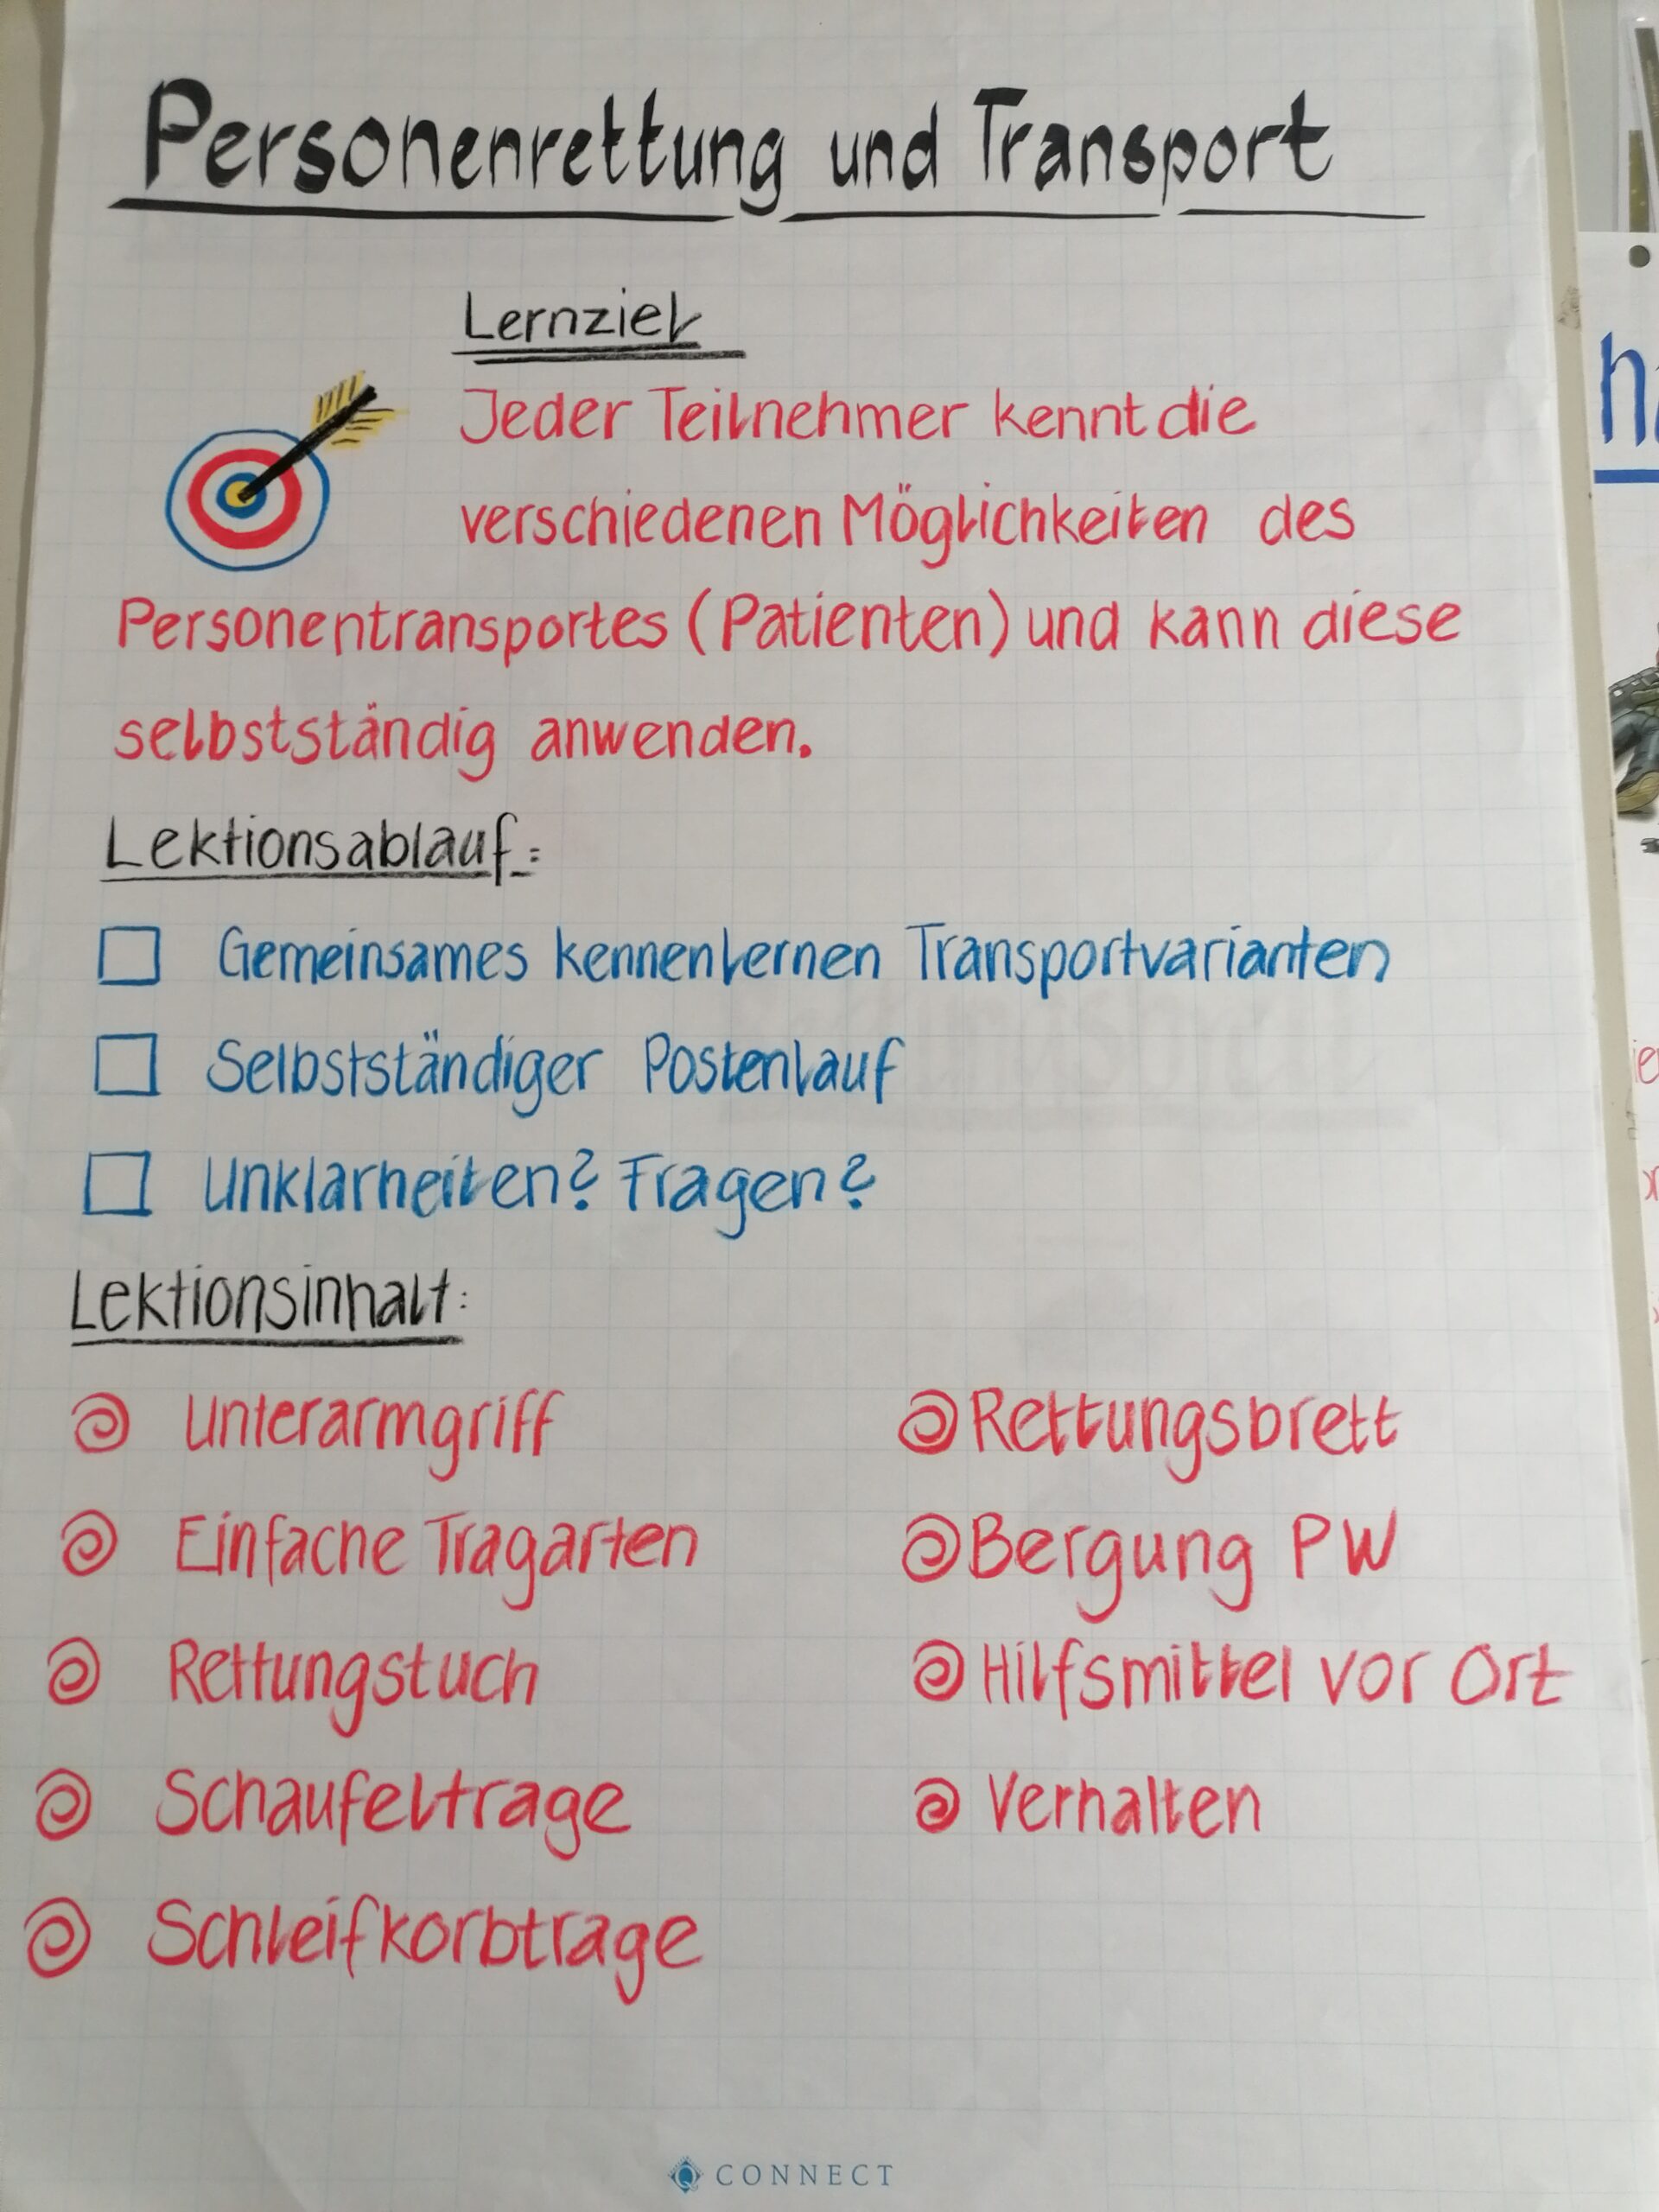 Personenrettung und Transport
Lernziel
Jeder Teilnehmer kennt die
verschiedenen Möglichkeiten des
Personentransportes (Patienten) und kann diese
selbstständig anwenden.
Lektionsablauf:
Gemeinsames kennenlernen Transportvarianten
Selbstständiger Postenlauf
Unklarheiten? Fragen?
Lektionsinhalt:
Unterarmgriff
Einfache Tragarten
Rettungstuch
Schaufeltrage
Schleifkorbtrage
Rettungsbrett
Bergung PW
Hilfsmittel vor Ort
Verhalten
CONNECT